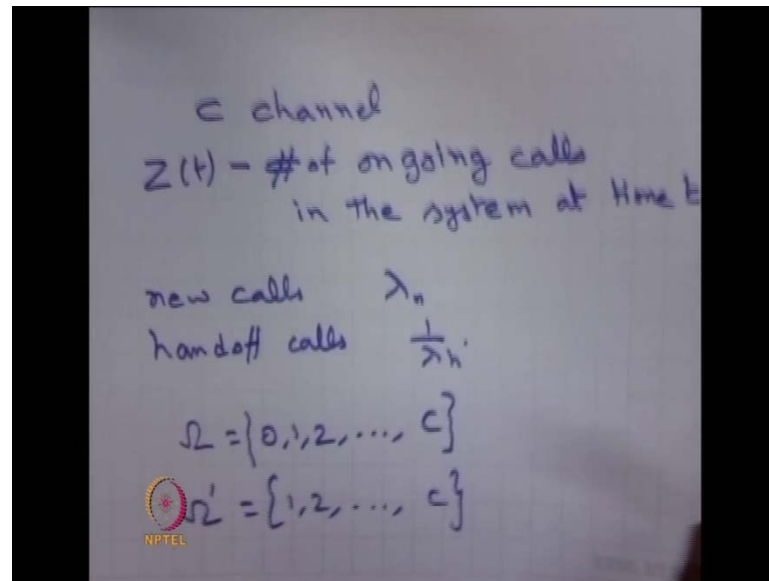 c channel
Z(t) - # of on going calls
in the system at time t
new calls λn
handoff calls 1/λh.
Ω = {0,1,2, ..., c}
Ω' = {1,2, ..., c}
NPTEL